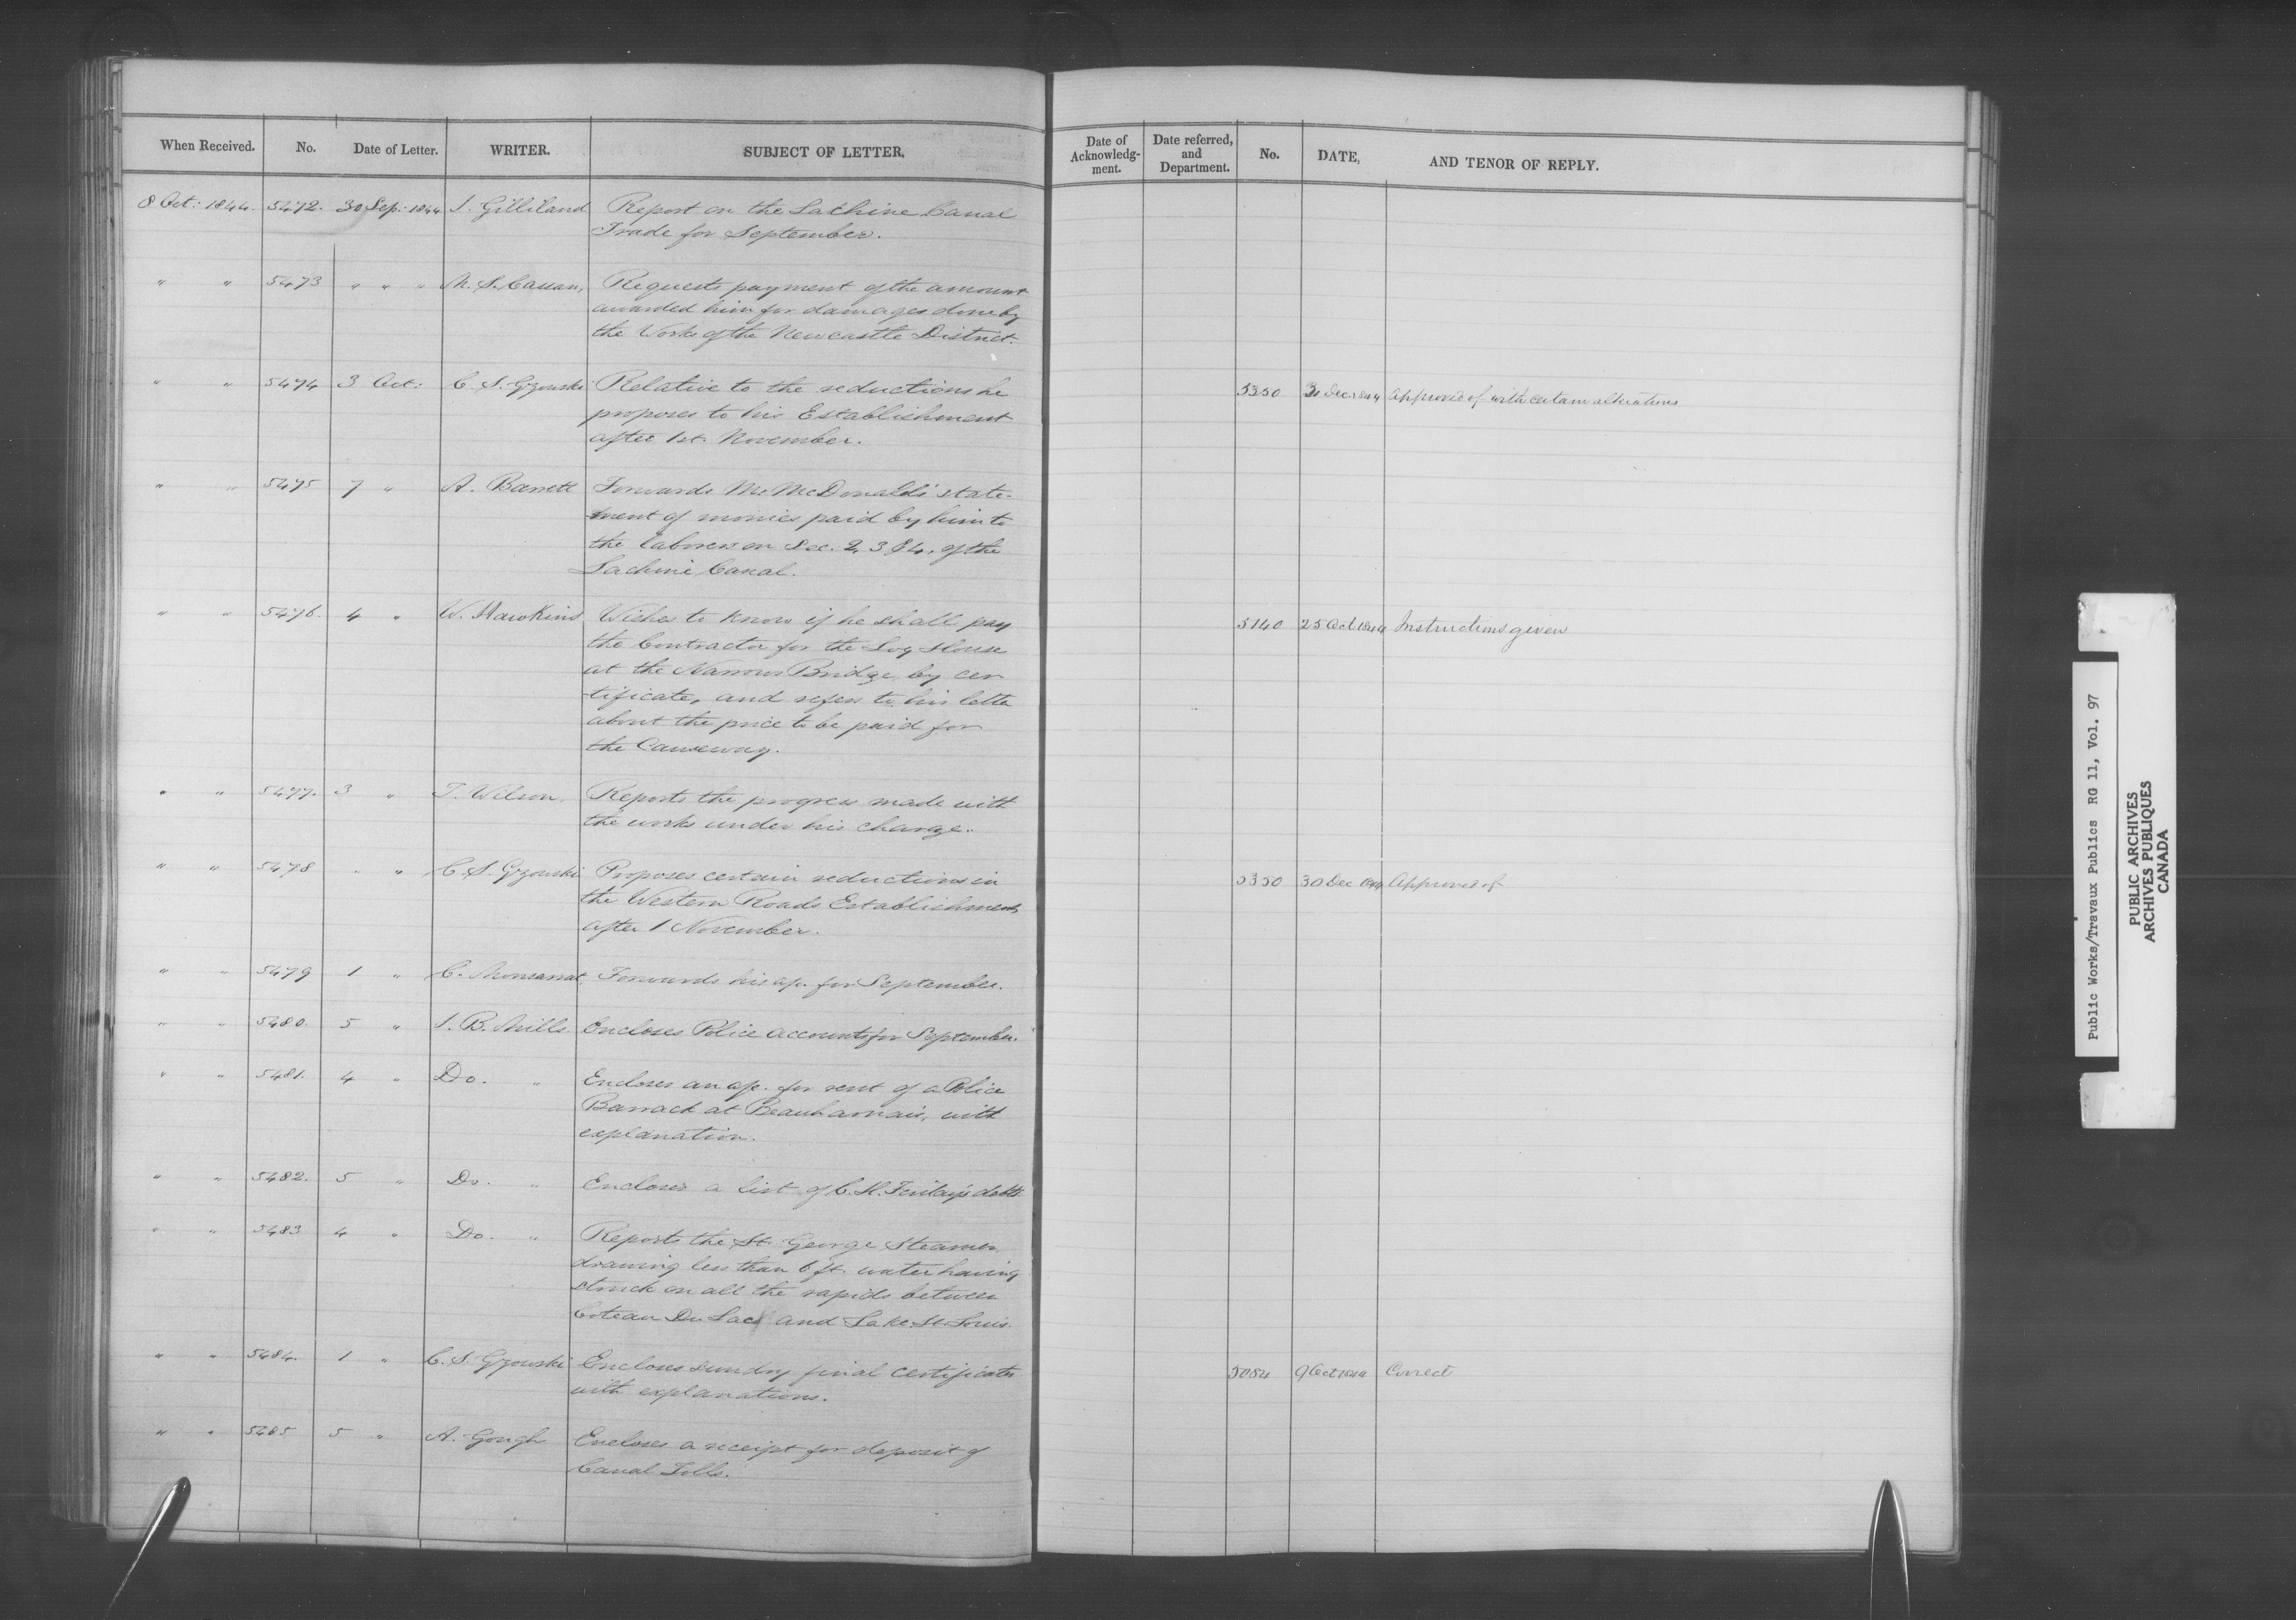 When Received. No. Date of Letter. WRITER. SUBJECT OF LETTER.
8 Oct: 1844. 5472. 30 Sep: 1844 J. Gilliland Report on the Lachine Canal
Trade for September.
" " 5473 " " " M. S. Cassan, Requests payment of the amount
awarded him for damages done by
the Works of the Newcastle District.
" " 5474 3 Oct: C. S. Gzowski Relative to the reductions he
proposes to his Establishment
after 1st. November.
" " 5475 7 " A. Barrett Forwards Mr. McDonald's state-
ment of monies paid by him to
the laborers on Sec. 2, 3 & 4, of the
Lachine Canal.
" " 5476. 4 " W. Hawkins Wishes to know if he shall pay
the Contractor for the Log House
at the Narrows Bridge, by cer
tificate, and refers to his letter
about the price to be paid for
the Causeway.
" " 5477. 3 " T. Wilson, Reports the progress made with
the works under his charge.
" " 5478 " " C. S. Gzowski Proposes certain reductions in
the Western Roads Establishment
after 1 November.
" " 5479 1 " C. Monsarrat, Forwards his a/c. for September.
" " 5480. 5 " J. B. Mills. Encloses Police accounts for September.
" " 5481. 4 " Do. " Encloses an a/c. for rent of a Police
Barrack at Beauharnais, with
explanation.
" " 5482. 5 " Do. " Encloses a list of C. H. debts
" " 5483 4 " Do. " Reports the St. George Steamer
drawing less than 6 ft. water having
struck on all the rapids between
Coteau Du Lac and Lake St. Louis.
" " 5484. 1 " C. S. Gzowski Encloses sundry final certificates
with explanations.
" " 5485 5 " A. Gough Encloses a receipt for deposit of
Canal Tolls.
Date of Acknowledg-ment. Date referred, and Department. No. DATE, AND TENOR OF REPLY.
5350 30 Dec 1844 Approved of with certain alterations
5140 25 Oct 1844 Instructions given
5350 30 Dec 1844 Approved of
5084 9 Oct 1844 Correct
Public Works/Travaux Publics RG 11, Vol. 97
PUBLIC ARCHIVES
ARCHIVES PUBLIQUES
CANADA